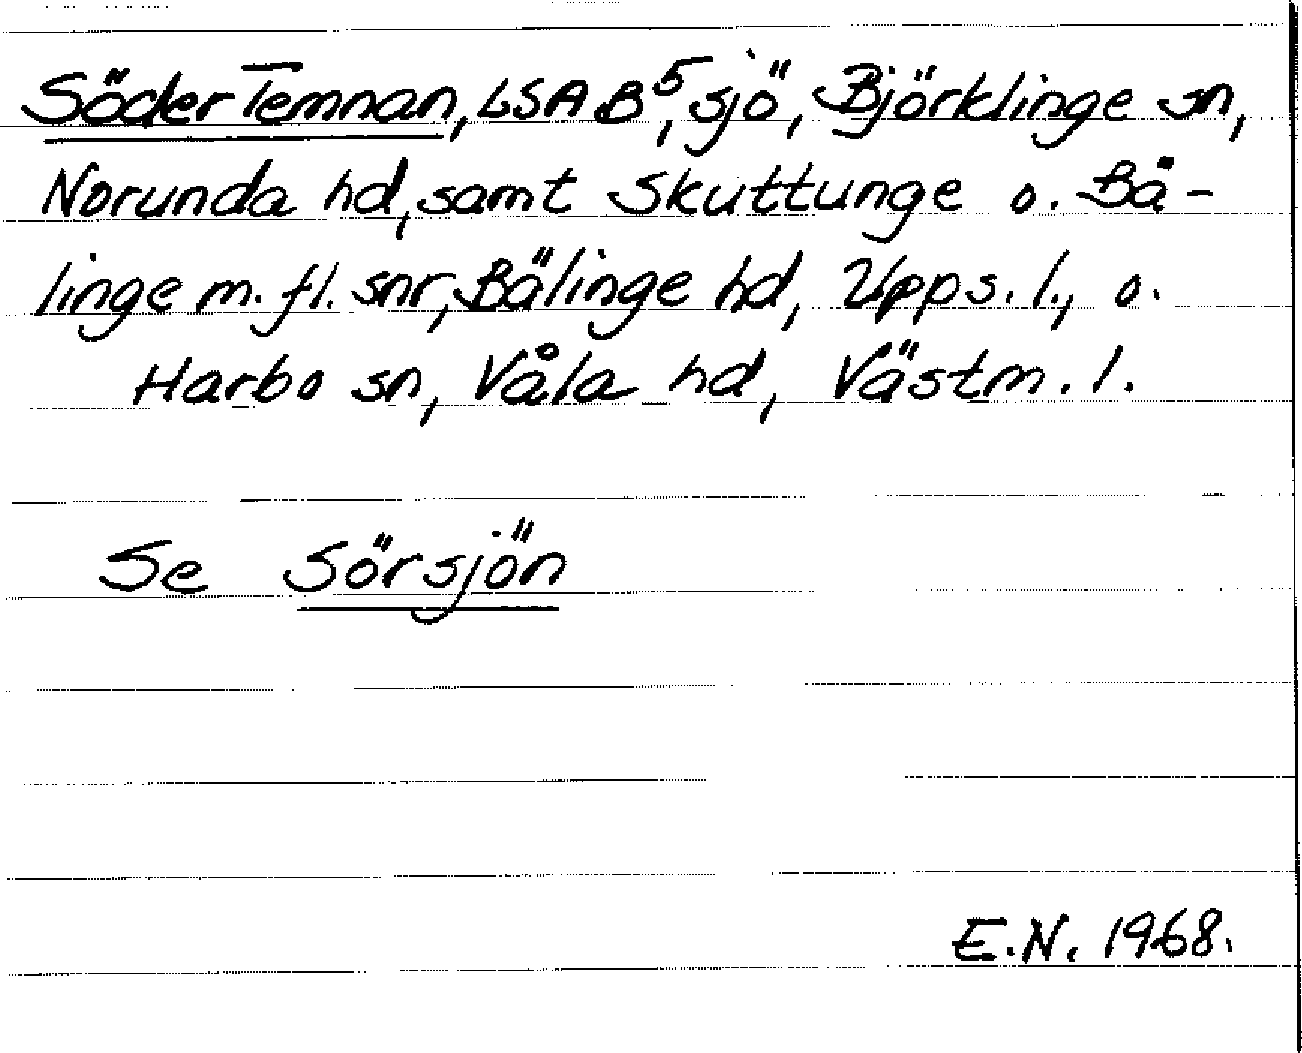 Söder Temnan, LSA B⁵, sjö, Björklinge sn,
Norunda hd, samt Skuttunge o. Bä-
linge m. fl. snr, Bälinge hd, Upps. l., o.
Harbo sn, Våla hd, Västm. l.
Se Sörsjön
E.N. 1968.